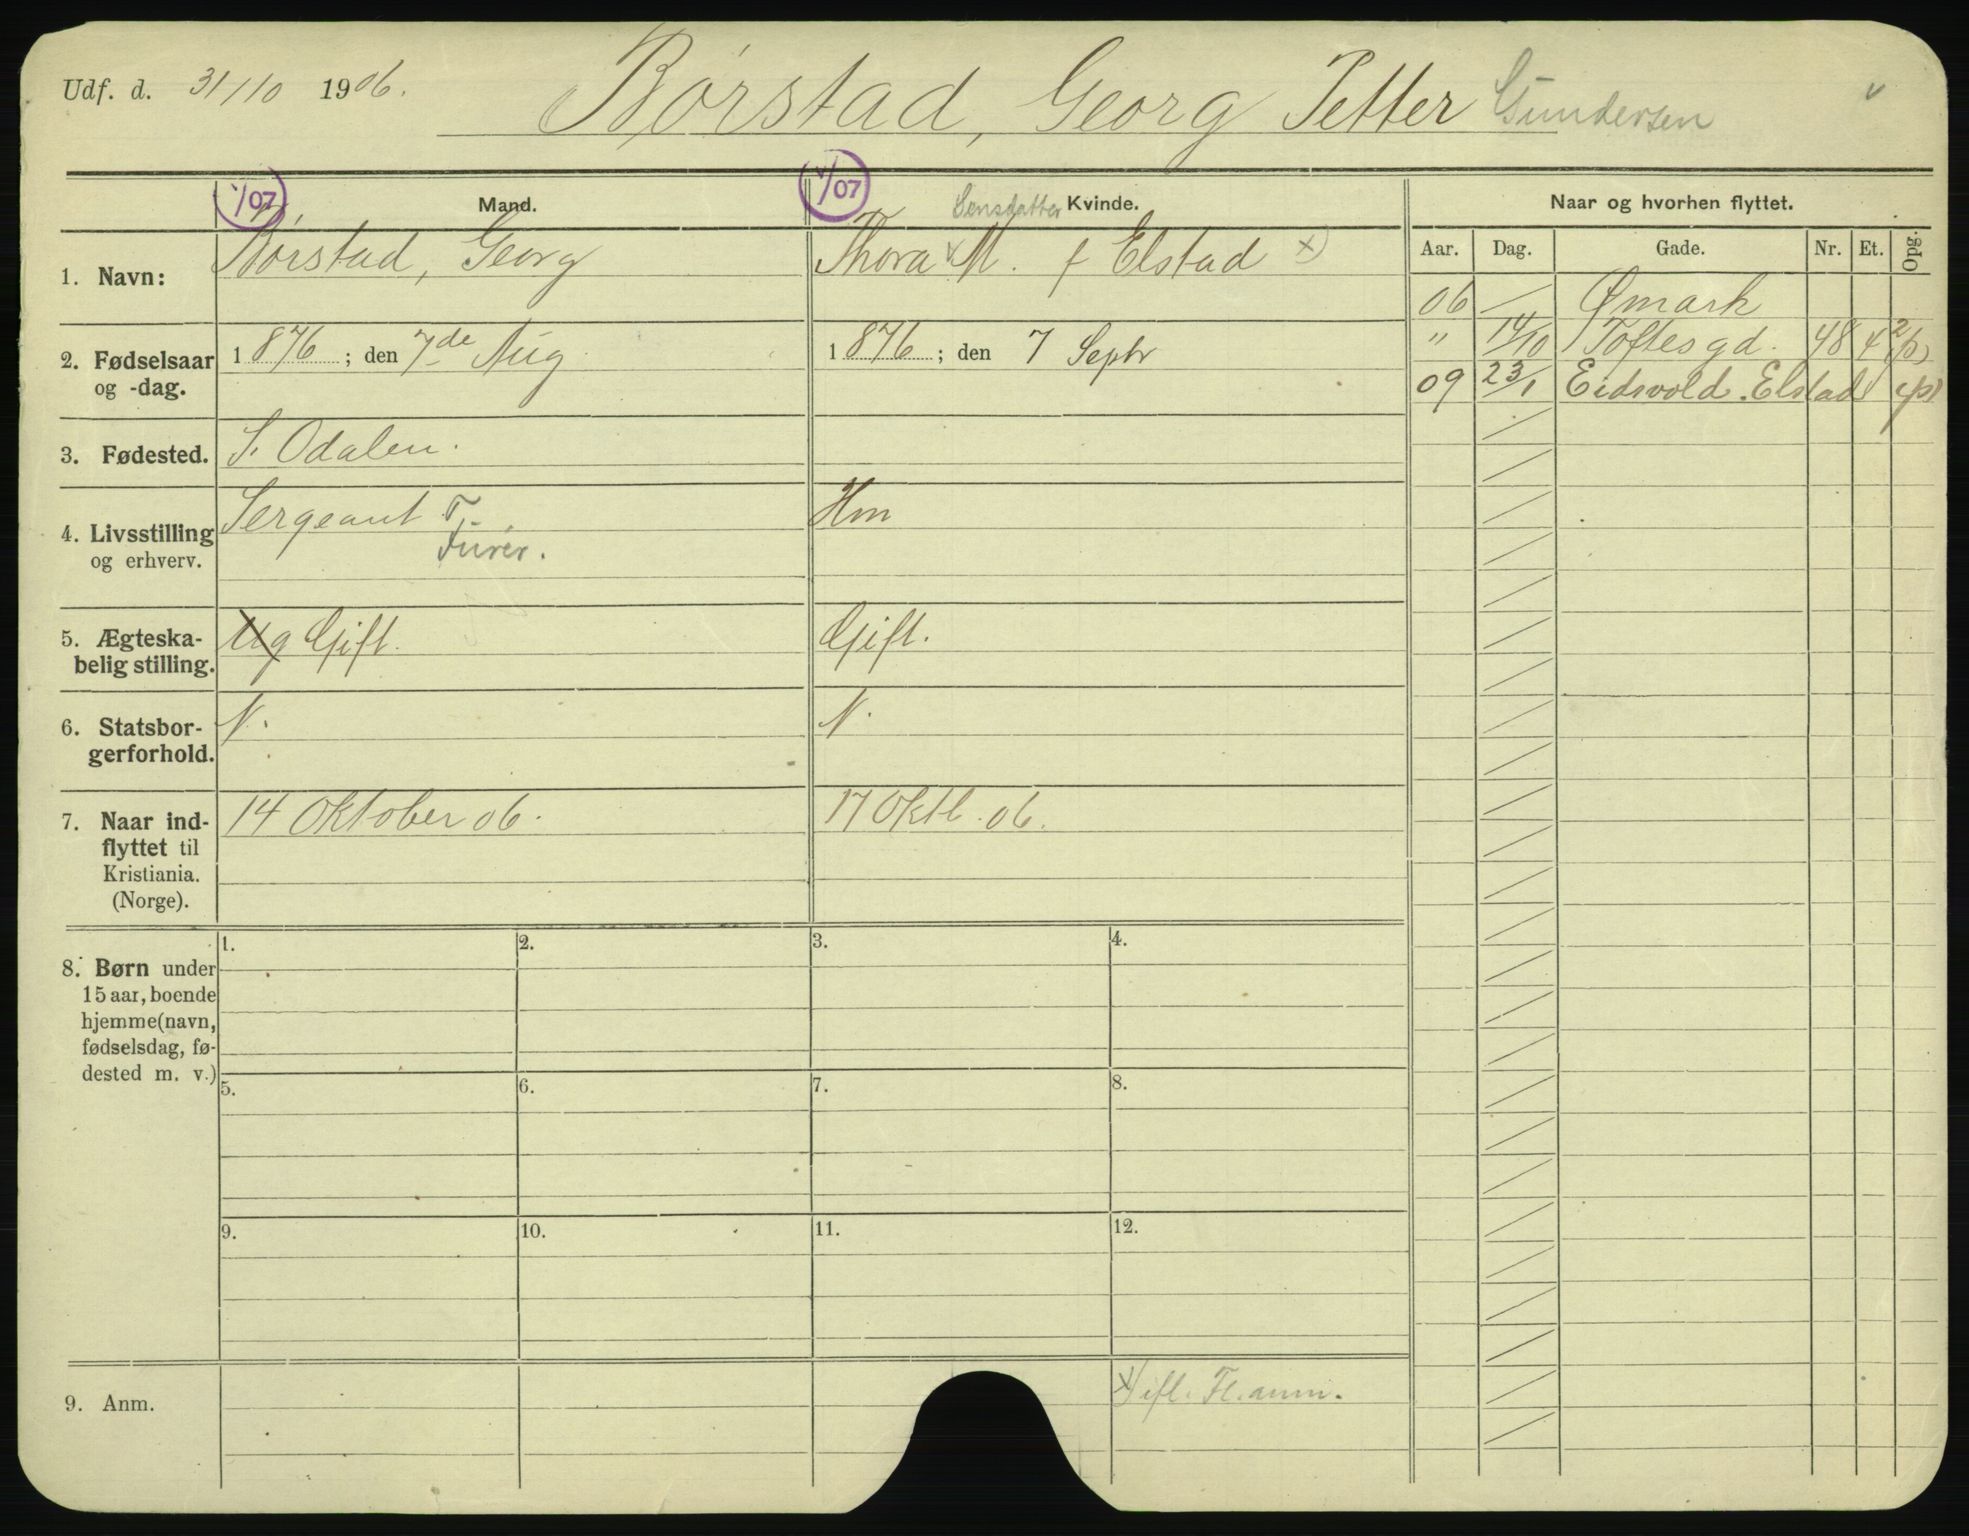 Udf. d. 31/10 1906.
Børstad, Georg Petter Gundersen
1/07 Mand. 1/07 Kvinde. Naar og hvorhen flyttet.
Aar. Dag. Gade. Nr. Et. Opg.
1. Navn: Børstad, Georg Thora M. f Elstad x)
06 Ømark
" 14/10 Toftesgd. 48 4 2 (p)
09 23/1 Eidsvold. Elstad (p)
2. Fødselsaar og -dag. 1876; den 7de Aug 1876; den 7 Septr
3. Fødested. S. Odalen.
4. Livsstilling og erhverv. Sergeant F Hm
Furér.
5. Ægteska-
belig stilling. Ug Gift. Gift.
6. Statsbor-
gerforhold. N. N.
7. Naar ind-
flyttet til
Kristiania.
(Norge). 14 Oktober 06. 17 Oktb. 06.
8. Børn under
15 aar, boende
hjemme (navn,
fødselsdag, fø-
dested m. v.)
1. 2. 3. 4.
5. 6. 7. 8.
9. 10. 11. 12.
9. Anm. x) ifl. Fl. anm.